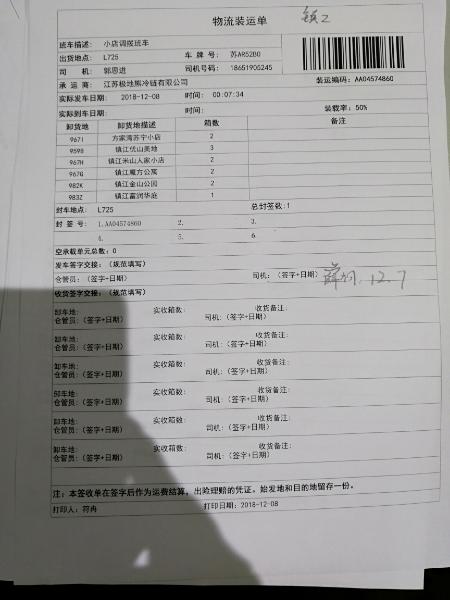 物流装运单 镇2
班车描述： 小店调拨班车
出货地点： L725 车 牌 号： 苏AR52B0
司 机： 郭思进 司机号码： 18651905245
承 运 商： 江苏极地熊冷链有限公司 装运编码：AA04574860
实际发车日期： 2018-12-08 时间： 00:07:34
实际到车日期： 时间： 装载率：50%
卸货地 卸货地描述 箱数 备注
967I 方家湾苏宁小店 2
959B 镇江优山美地 3
967H 镇江米山人家小店 2
967G 镇江魔方公寓 2
982K 镇江金山公园 2
983Z 镇江富润华庭 1
封车地点： L725 总封签数:1
封 签 号： 1.AA04574860 2. 3.
4. 5. 6.
空承载单元总数：0
发车签字交接：（规范填写）
仓管员：（签字+日期） 司机：（签字+日期） 12.7
收货签字交接：（规范填写）
卸车地： 实收箱数： 收货备注：
仓管员：（签字+日期） 司机：（签字+日期）
卸车地： 实收箱数： 收货备注：
仓管员：（签字+日期） 司机：（签字+日期）
卸车地： 实收箱数： 收货备注：
仓管员：（签字+日期） 司机：（签字+日期）
卸车地： 实收箱数： 收货备注：
仓管员：（签字+日期） 司机：（签字+日期）
卸车地： 实收箱数： 收货备注：
仓管员：（签字+日期） 司机：（签字+日期）
卸车地： 实收箱数： 收货备注：
仓管员：（签字+日期） 司机：（签字+日期）
注：本签收单在签字后作为运费结算，出险理赔的凭证。始发地和目的地留存一份。
打印人：符冉 打印日期：2018-12-08